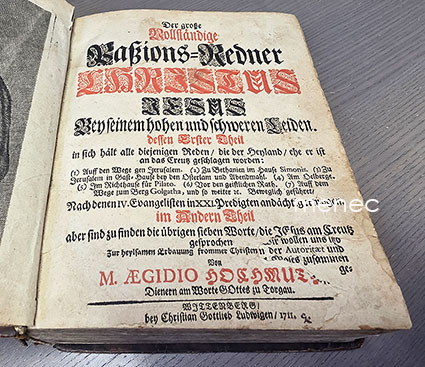 Der große
Vollständige
Paßions-Redner
CHRISTUS
JESUS
Bey seinem hohen und schweren Leiden.
dessen Erster Theil
in sich hält alle diejenigen Reden / die der Heyland / ehe er ist
an das Creutz geschlagen worden:
(1) Auff den Wege gen Jerusalem. (2) Zu Bethanien im Hause Simonis. (3) Zu
Jerusalem in Gast-Hause bey den Osterlam und Abendmahl. (4) Am Oelberge.
(5) Im Richthause für Pilato. (6) Vor den geistlichen Rath. (7) Auff dem
Wege zum Berg Golgatha / und so weiter ꝛc. Beweglich geführet /
Nach denen IV. Evangelisten in XXI. Predigten andächtig
im Andern Theil
aber sind zu finden die übrigen sieben Worte / die JEsus am Creutz
gesprochen wollen uns
Zur heylsamen Erbauung frommer Christen der Autorität und
zusammen
Von ge-
M. ÆGIDIO HOCHMUT
Dienern am Worte GOttes zu Torgau.
WITTENBERG /
bey Christian Gottlieb Ludwigen / 1711.